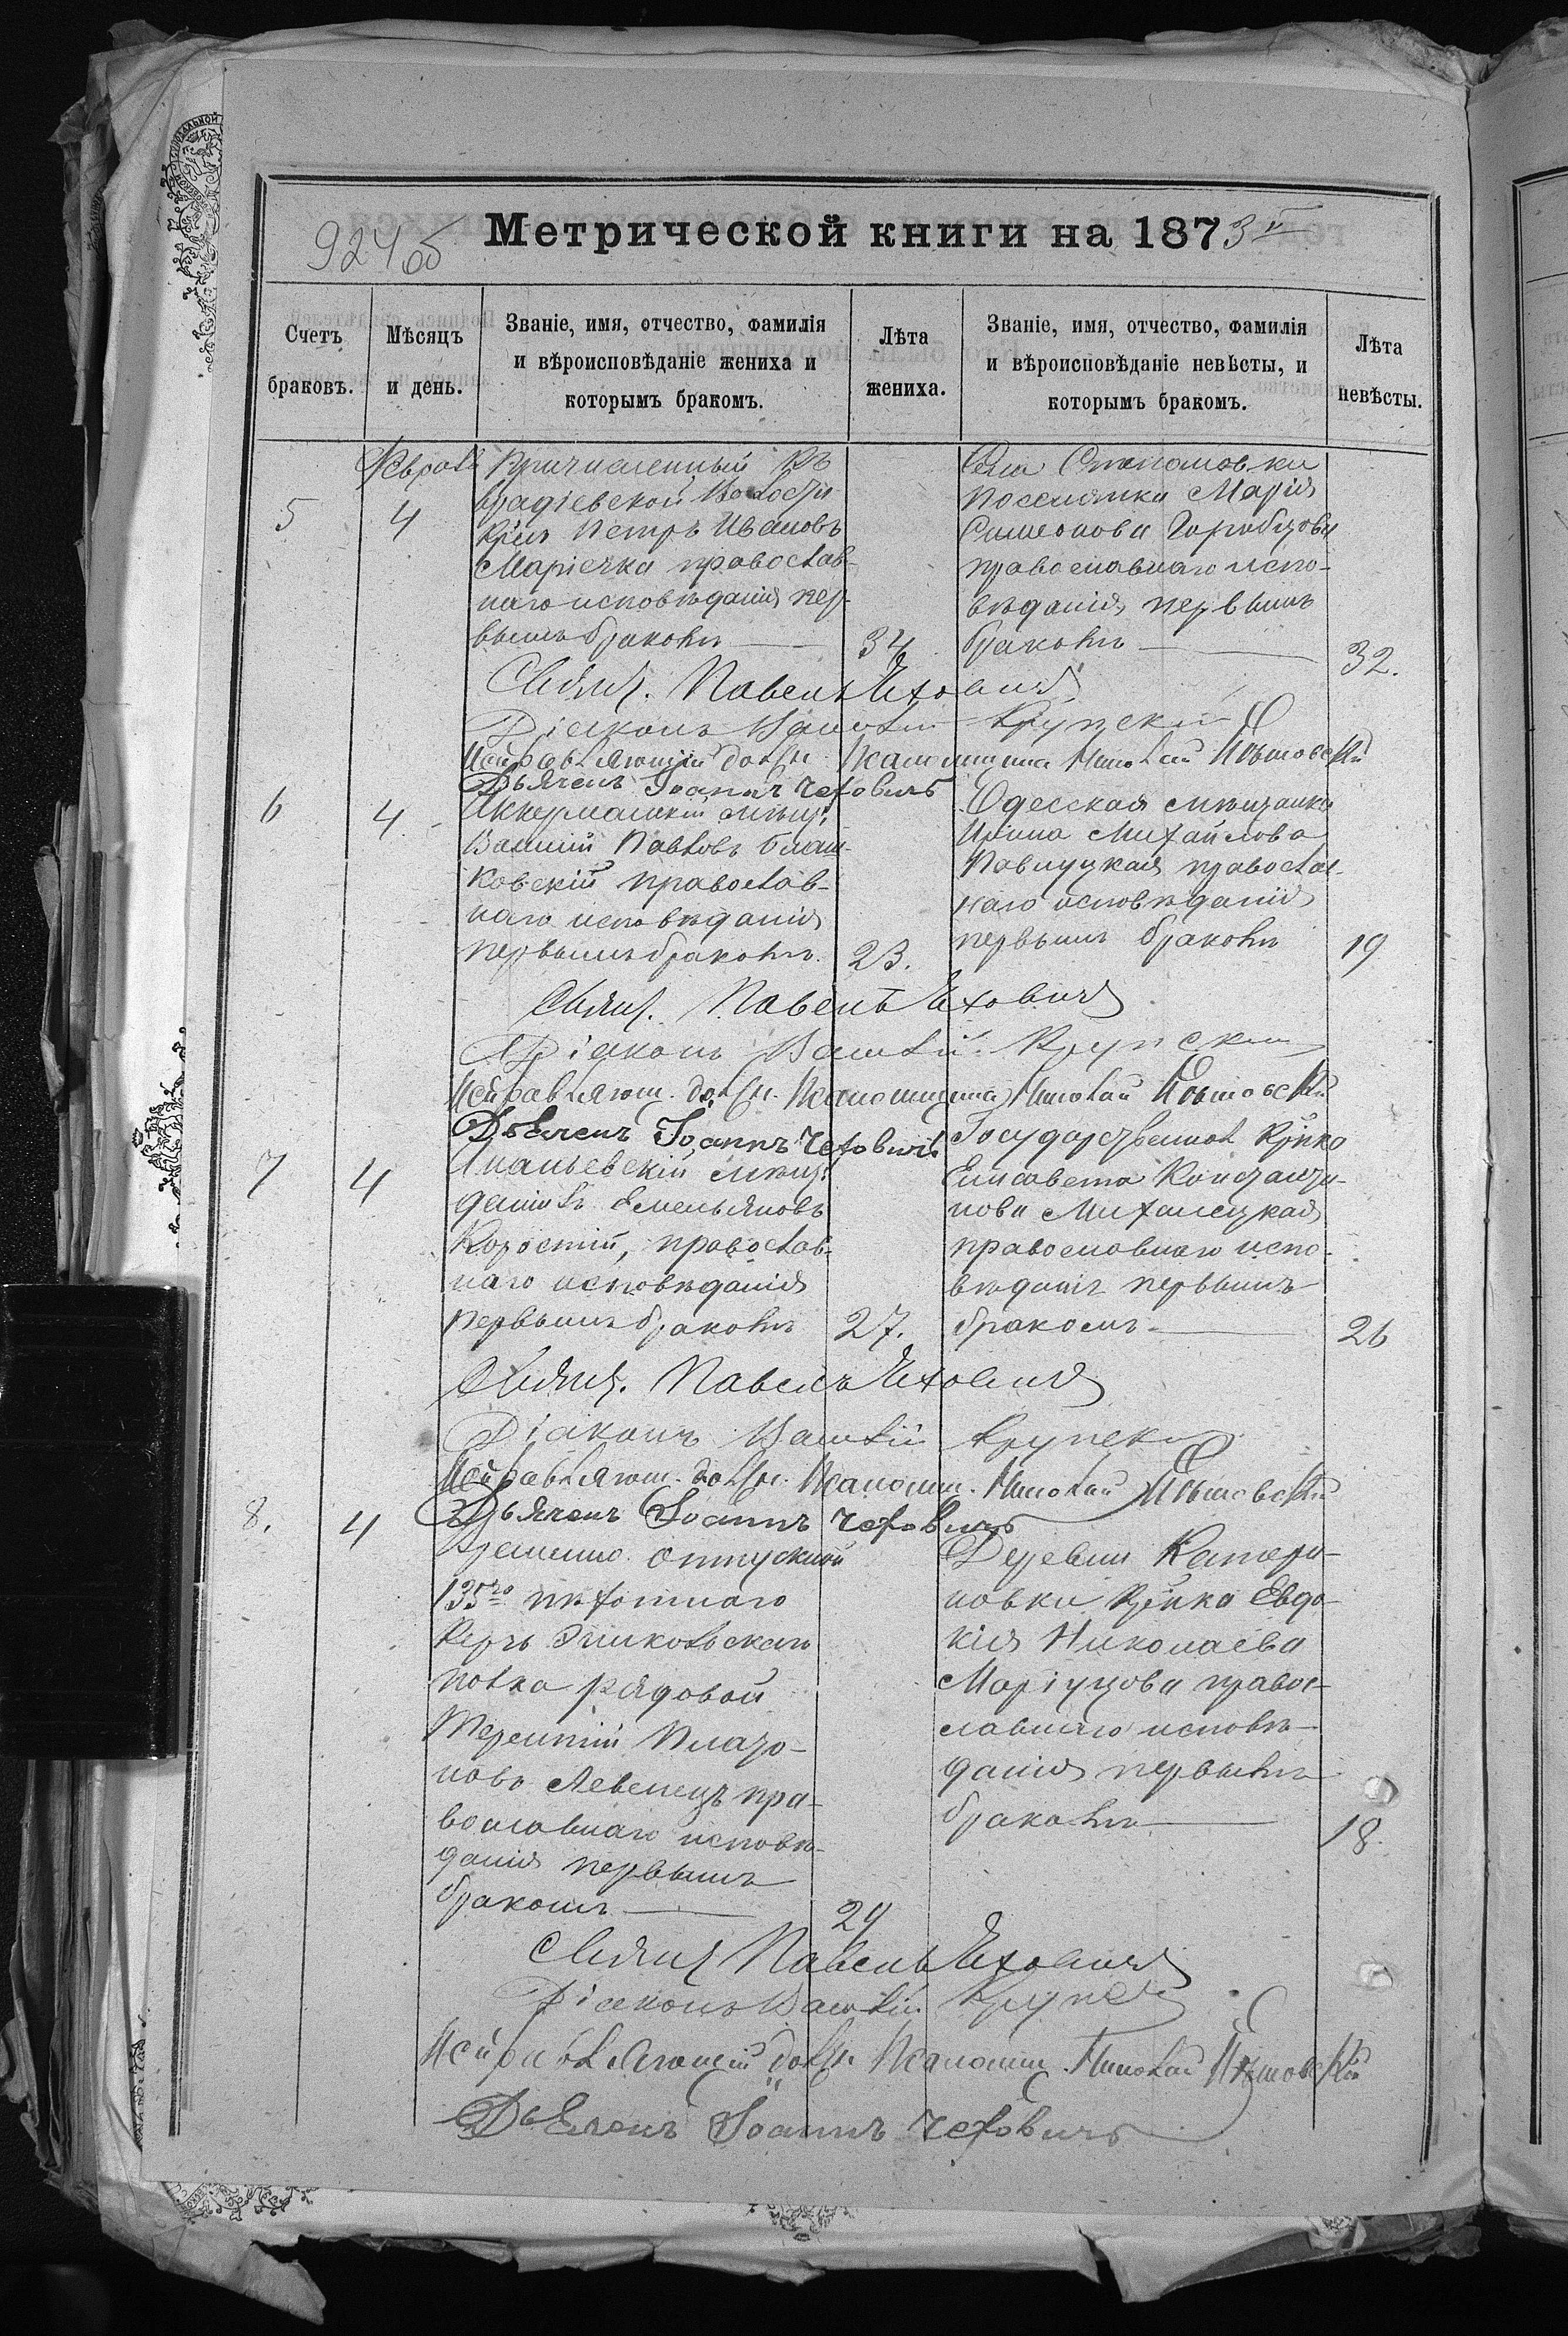 924 об
Метрической книги на 1873й
Счетъ браковъ.
Мѣсяцъ и день.
Званіе, имя, отчество, фамилія и вѣроисповѣданіе жениха и которымъ бракомъ.
Лѣта жениха.
Званіе, имя, отчество, фамилія и вѣроисповѣданіе невѣсты, и которымъ бракомъ.
Лѣта невѣсты.
5
Февраль
4
Причисленный къ
Врадіевской волости
Петръ Ивановъ
Маріечка православ-
наго исповѣданія пер-
вымъ бракомъ
34
Села Степановки
поселянка Марія
Симеонова
православнаго испо-
вѣданія первымъ
бракомъ
32.
Свящ. Павелъ Яховичъ
Діаконъ Василій Крупскій
Исправляющій долж. Псаломщика Николай
Дьячекъ Іоаннъ Чеховичъ
6
4.
Аккерманскій мѣщ.
Василій Павловъ
православ-
наго исповѣданія
первымъ бракомъ.
23.
Одесская мѣщанка
Ирина Михайлова
Павлуцкая православ-
наго исповѣданія
первымъ бракомъ
19
Свящ. Павелъ Яховичъ
Діаконъ Василій Крупскій
Исправляющ. долж. Псаломщика Николай
Дьячекъ Іоаннъ Чеховичъ
7
4
Ананьевскій мѣщ.
Даніилъ Емельяновъ
православ-
наго исповѣданія
первымъ бракомъ
27.
Государствен.
Елисавета Константи-
нова
православнаго испо-
вѣданія первымъ
бракомъ
26
Свящ. Павелъ Яховичъ
Діаконъ Василій Крупскій
Исправляющ. долж. Псаломщ. Николай
Дьячекъ Іоаннъ Чеховичъ
8.
4
Временно отпускной
135го пѣхотнаго
Керчь Эникольскаго
полка рядовой
Терентій Плато-
новъ Левенецъ пра-
вославнаго исповѣ-
данія первымъ
бракомъ
29
Деревни Катери-
новки Евдо-
кія Николаева
Маріуцова правос-
лавнаго исповѣ-
данія первымъ
бракомъ
18.
Свящ. Павелъ Яховичъ
Діаконъ Василій Крупскій
Исправляющій долж. Псаломщ. Николай
Дьячекъ Іоаннъ Чеховичъ